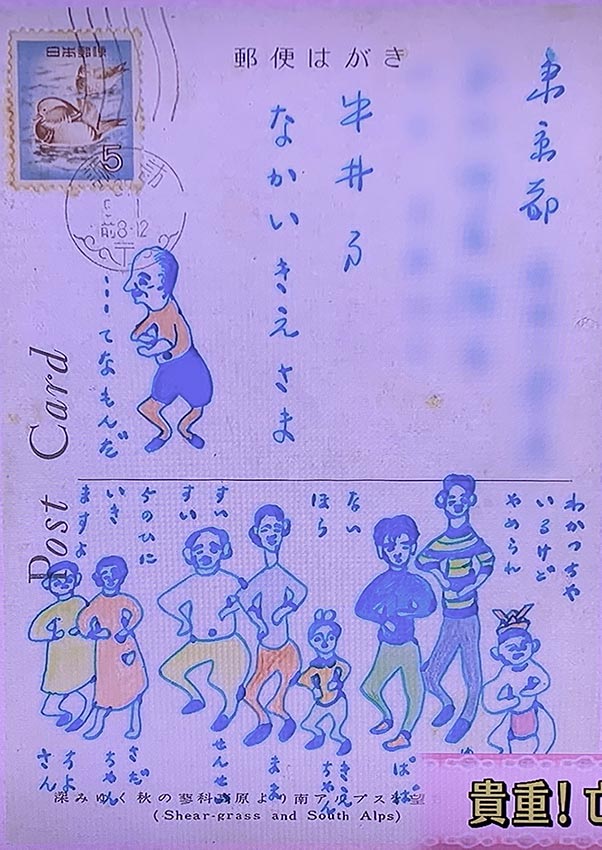 郵便はがき
日本郵便
5
前8-12
東京都
井方
なかいきえさま
…てなもんだ
Post Card
わかつちや
いるけど
やめられ
ない
ほら
すい
すい
5のひに
いき
ますよ
ぱぱ
ちやん
まま
せんせ
さだちやん
ちよさん
深みゆく秋の蓼科高原より南アルプスを望
(Shear-grass and South Alps)
貴重!